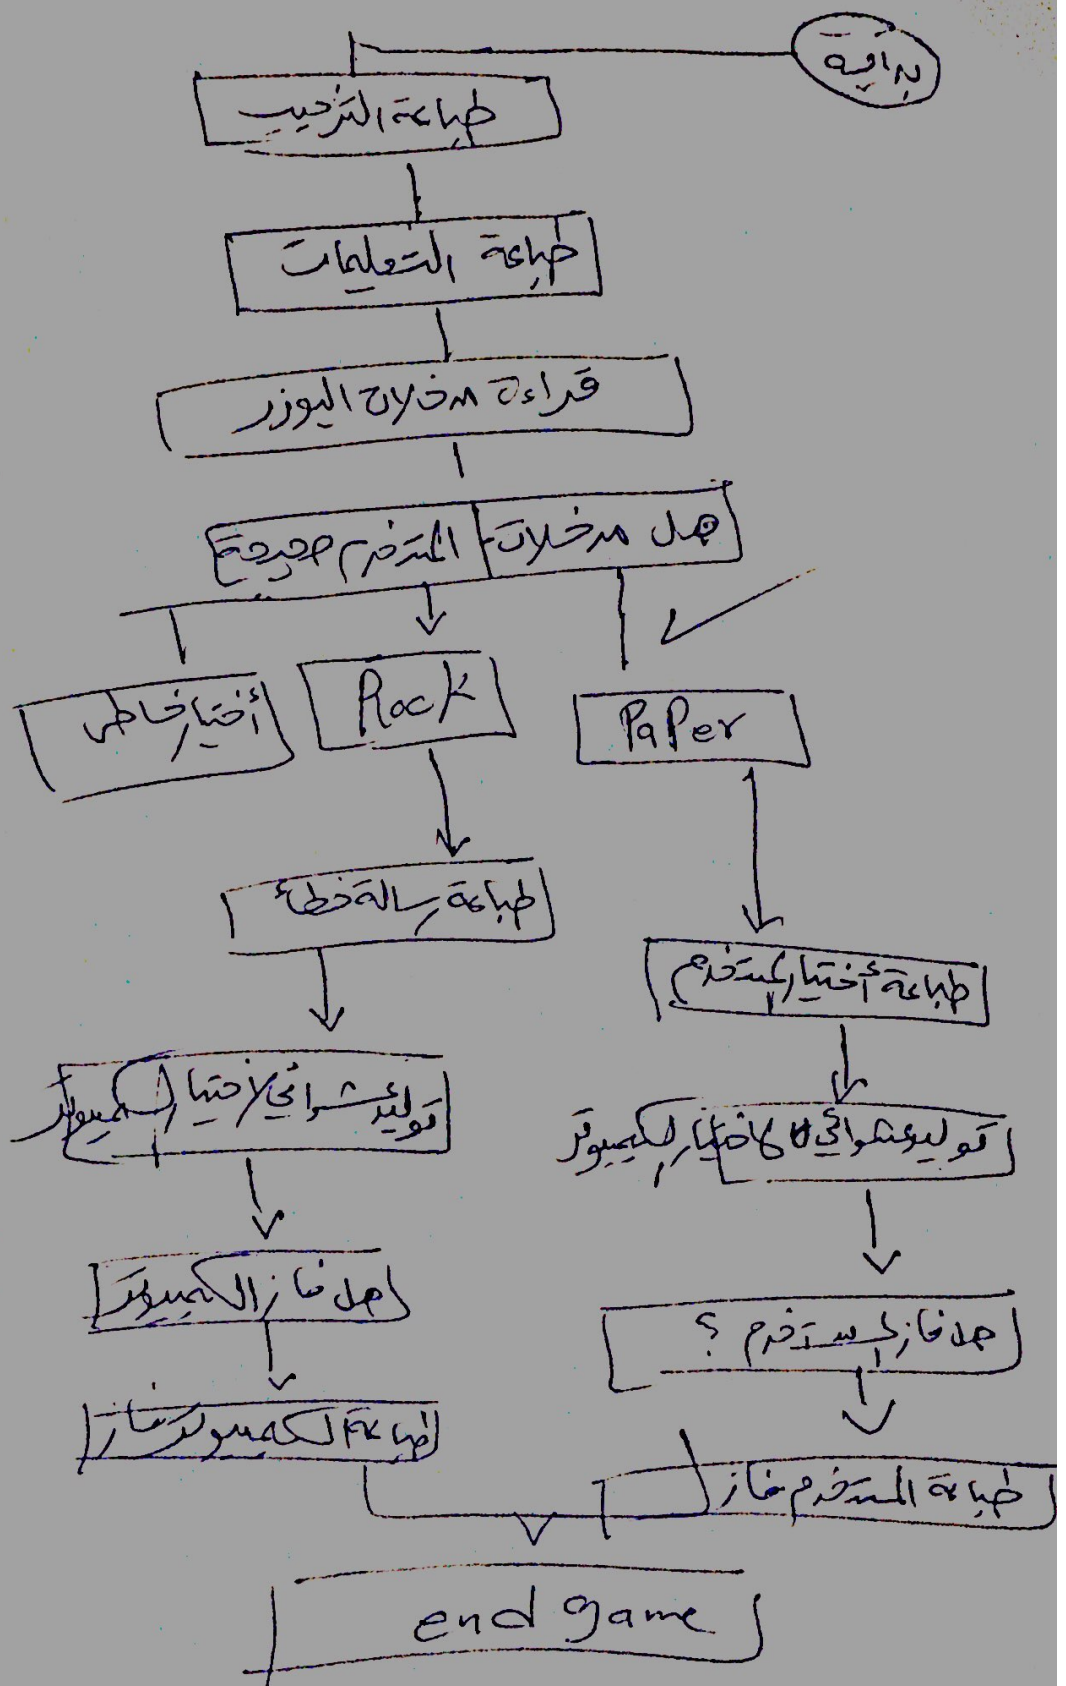 بداية
طباعة الترحيب
طباعة التعليمات
قراءة مدخلات اليوزر
هل مدخلات المستخدم صحيح
أختيار خاطئ
Rock
Paper
طباعة رسالة خطأ
طباعة أختيار المستخدم
توليد عشوائي لأختيار الكمبيوتر
توليد عشوائي لاختيار الكمبيوتر
هل فاز الكمبيوتر
هل فاز المستخدم ؟
طباعة الكمبيوتر فاز
طباعة المستخدم فاز
end game